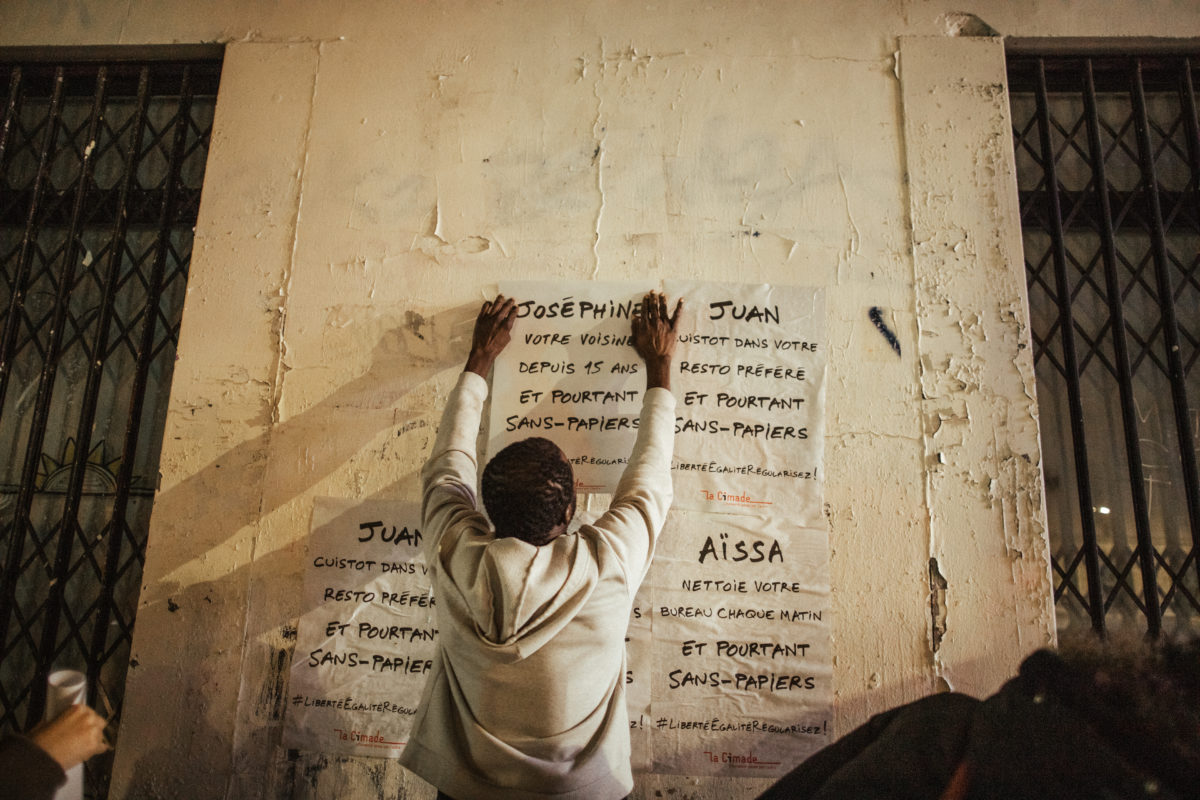 JOSÉPHINE
VOTRE VOISINE
DEPUIS 15 ANS
ET POURTANT
SANS-PAPIERS
JUAN
CUISTOT DANS VOTRE
RESTO PRÉFÉRÉ
ET POURTANT
SANS-PAPIERS
LIBERTÉEGALITÉREGULARISEZ!
la Cimade
JUAN
CUISTOT DANS V
RESTO PRÉFÉR
ET POURTAN
SANS-PAPIER
#LIBERTÉEGALITÉREGU
la Cimade
AÏSSA
NETTOIE VOTRE
BUREAU CHAQUE MATIN
ET POURTANT
SANS-PAPIERS
#LIBERTÉEGALITÉREGULARISEZ!
la Cimade